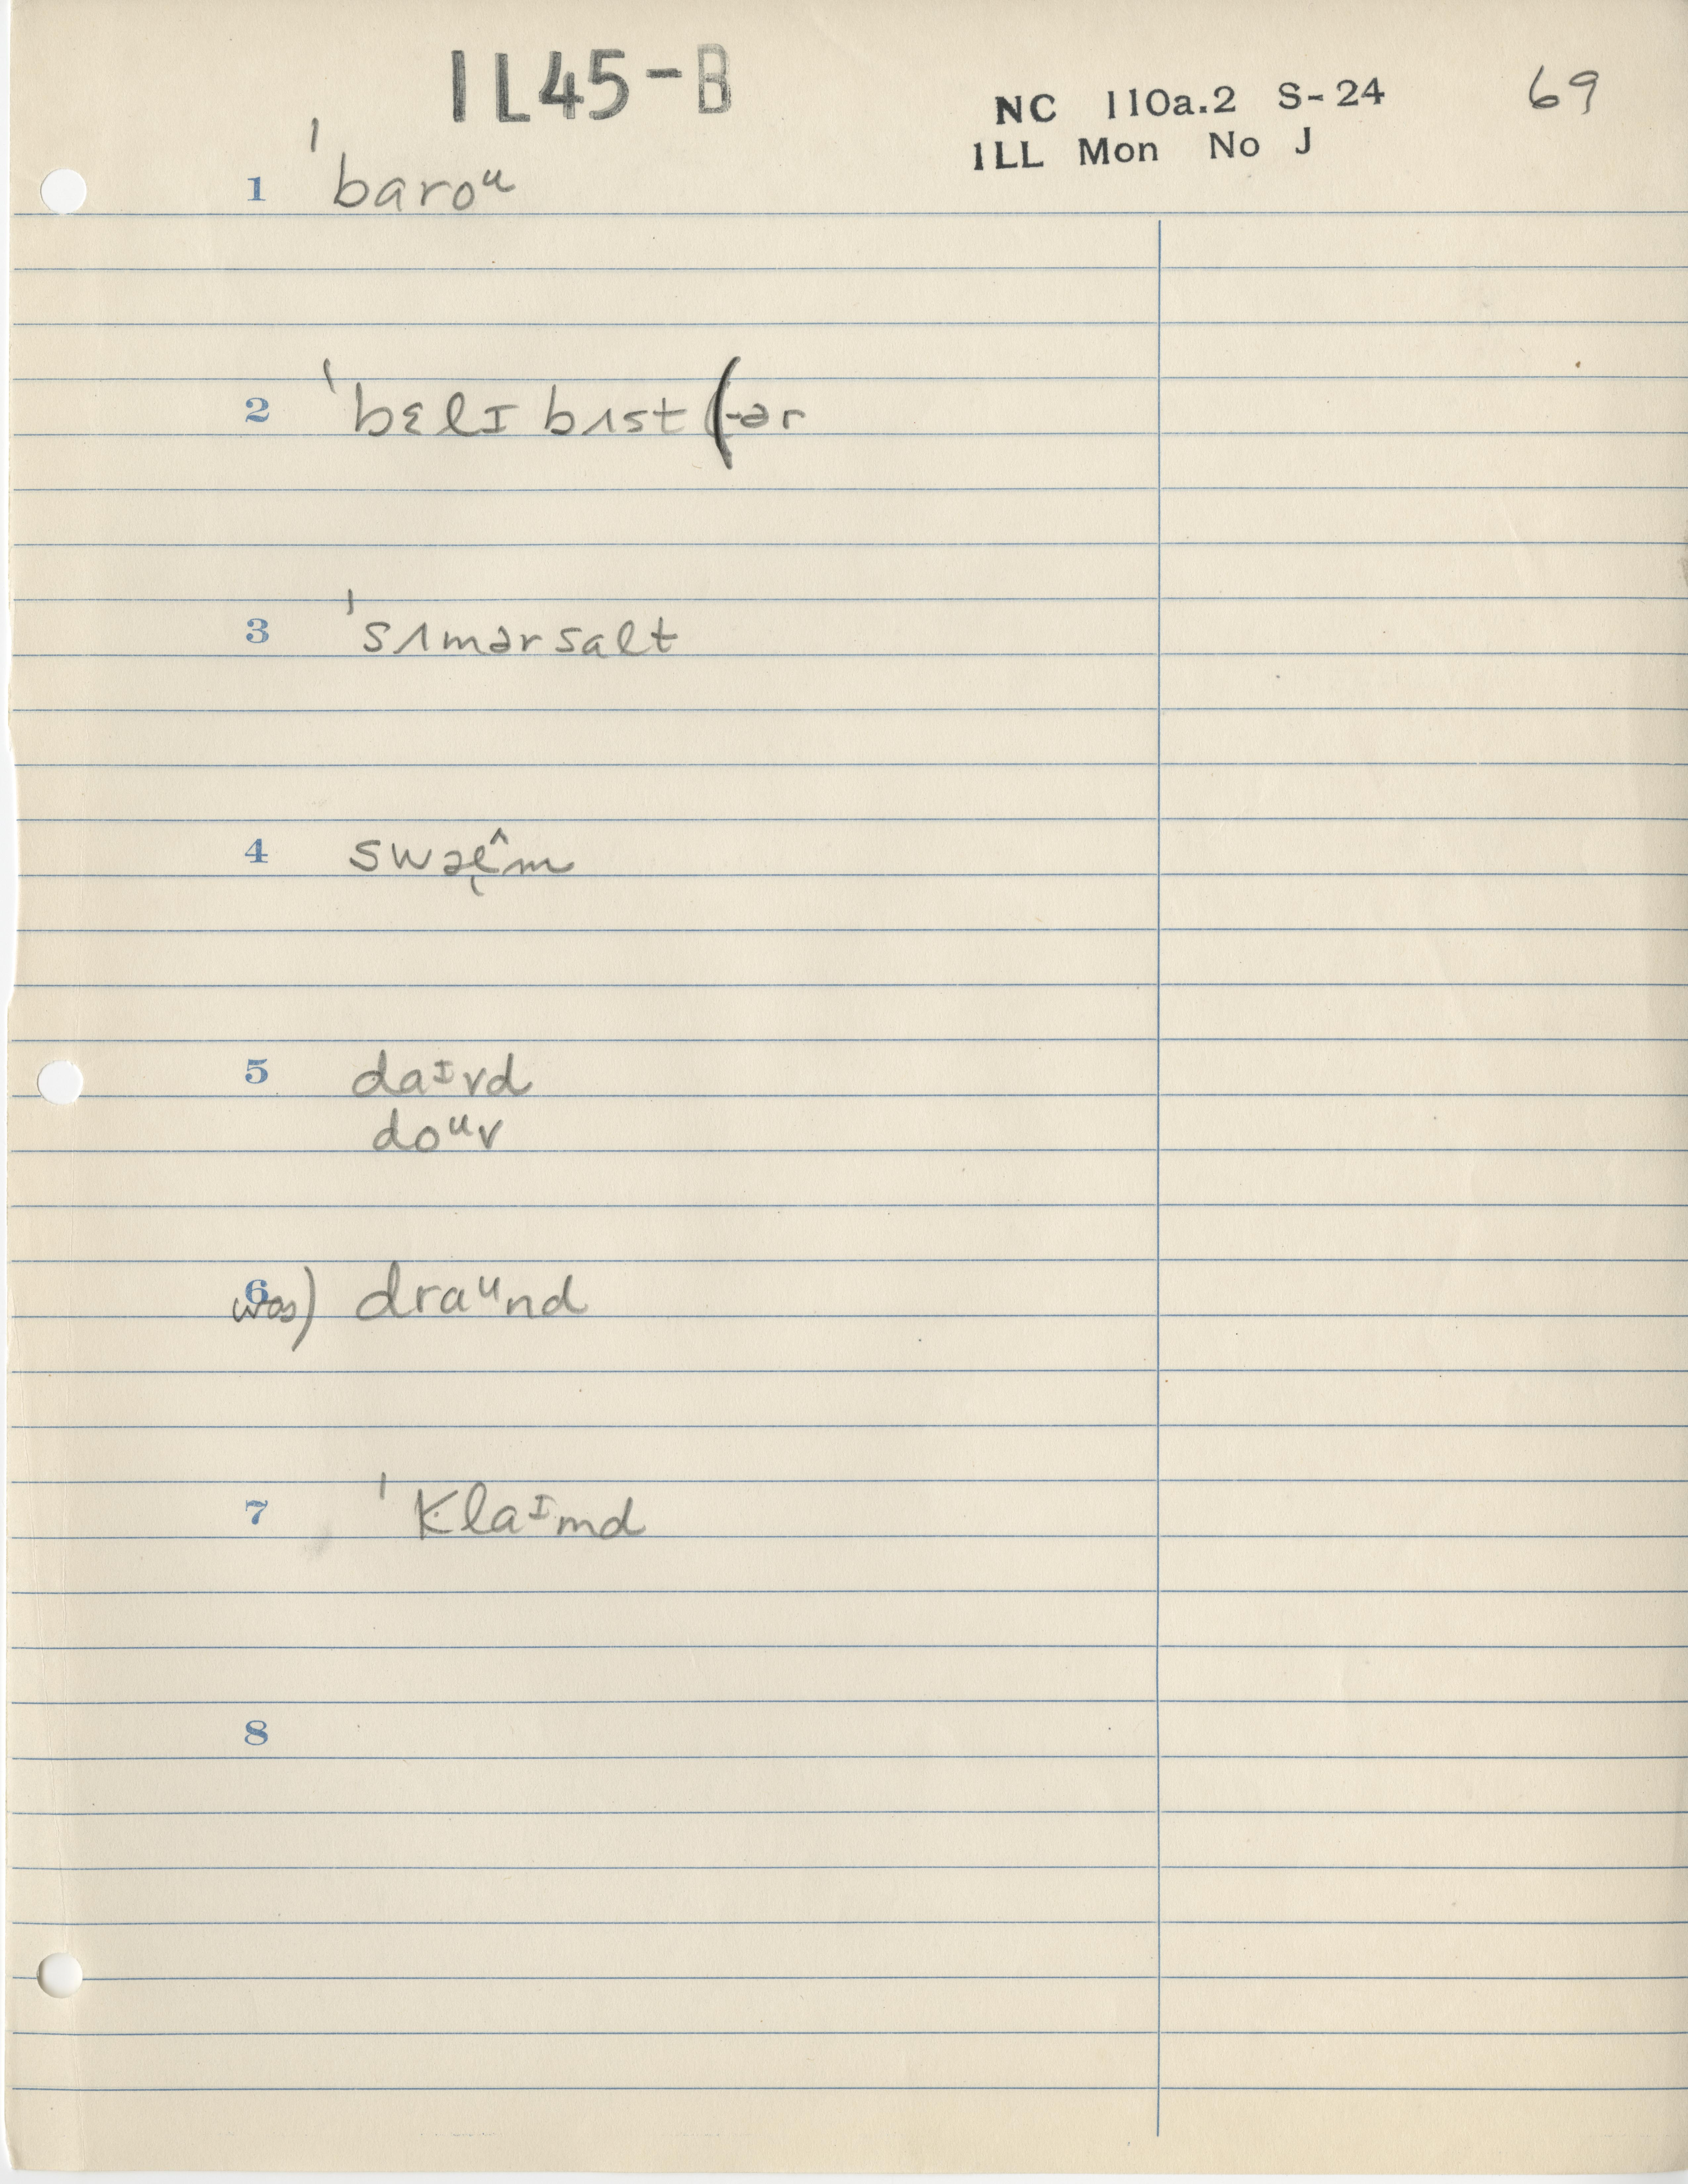 IL45-B
NC 110a.2 S-24 69
ILL Mon No J
1 ˈbaroᵘ
2 ˈbɛlɪ bʌst (-ər
3 ˈsʌmərsalt
4 swæ̨̂m
5 daᶦvd
doᵘv
6 was) draᵘnd
7 ˈklaᶦmd
8